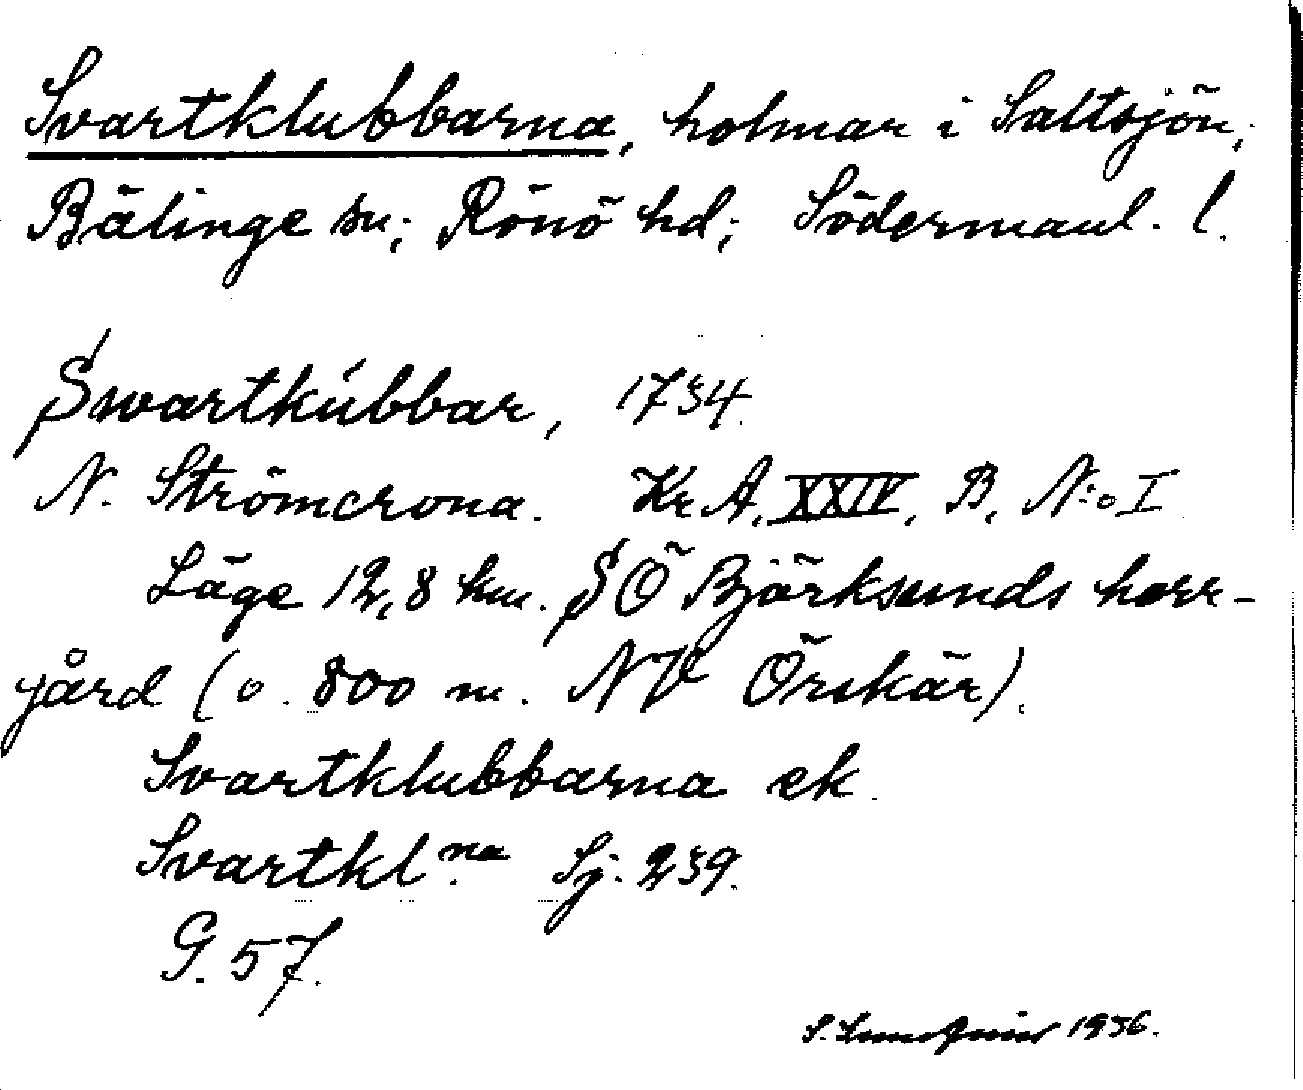 Svartklubbarna, holmar i Saltsjön,
Bälinge sn; Rönö hd; Södermanl. l.
Swartkúbbar, 1734.
N. Strömcrona. Kr. A. XXIV, B, N:o I
Läge 12,8 km. SÖ Björksunds herr-
gård (o. 800 m. NV Örskär).
Svartklubbarna ek.
Svartkl.na Sj. 239.
G. 57.
S. 1936.